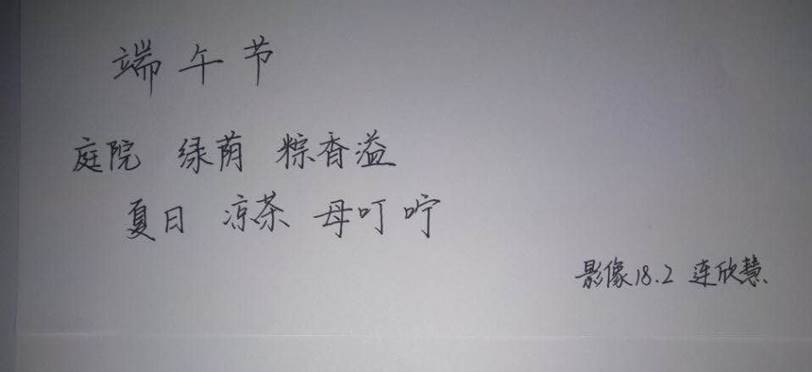 端午节
庭院 绿荫 粽香溢
夏日 凉茶 母叮咛
影像18.2 连欣慧